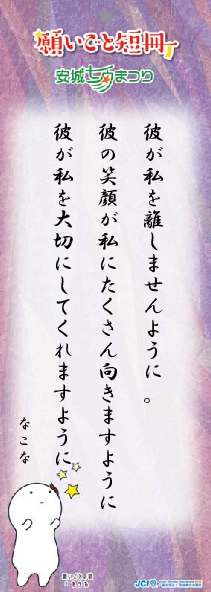 願いごと短冊
安城七夕まつり
彼が私を離しませんように。
彼の笑顔が私にたくさん向きますように
彼が私を大切にしてくれますように
なこな
JCI